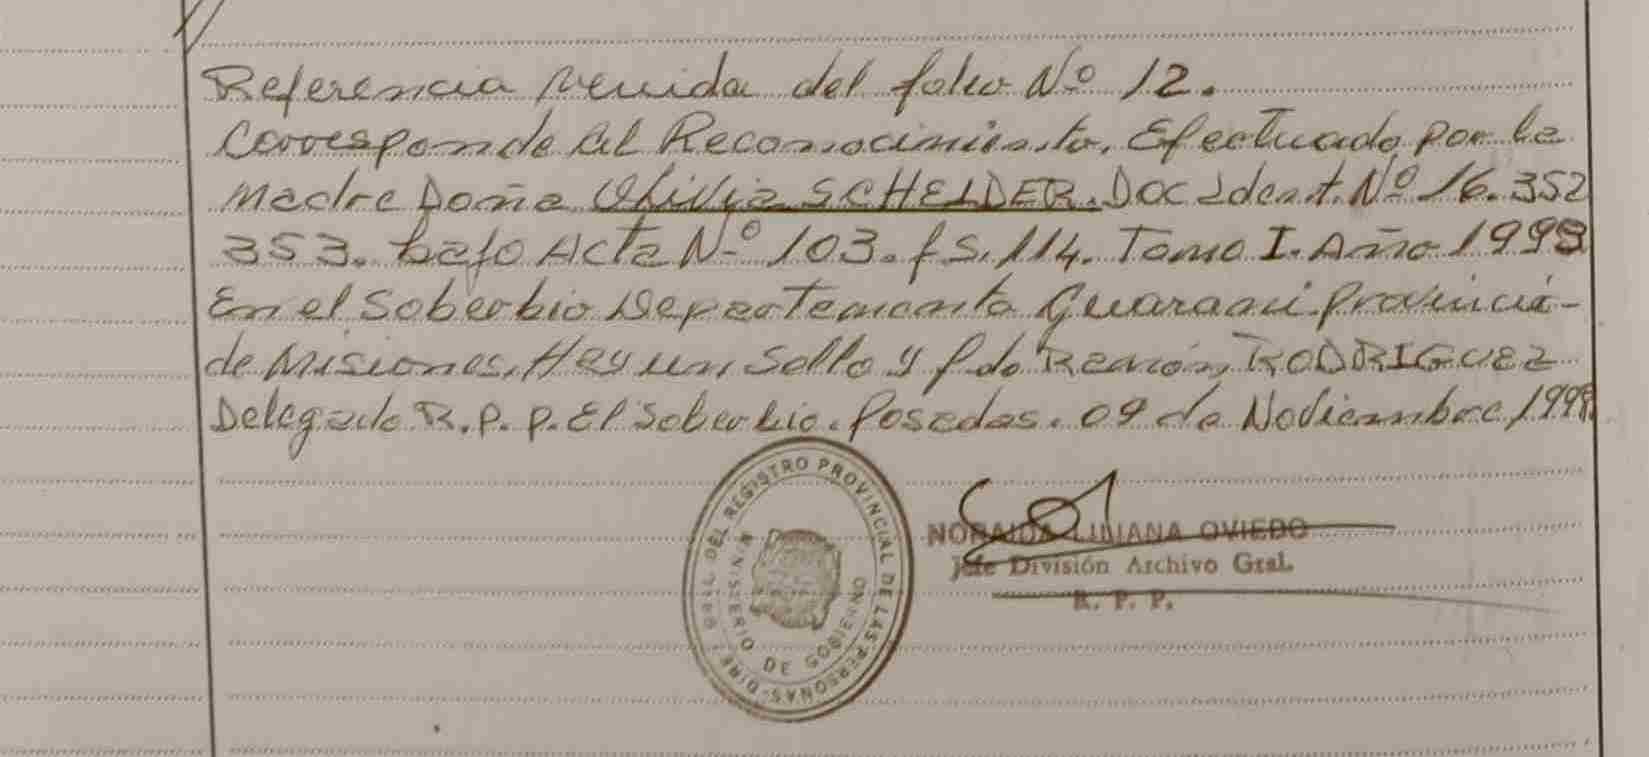 Referencia venida del folio Nº 12.
Corresponde al Reconocimiento. Efectuado por la
Madre Doña Olivia SCHELDER. Doc Ident. Nº 16.352
353. bajo Acta Nº 103. fs. 114. Tomo I. Año 1998
En el Soberbio Departamento Guarani. Provincia-
de Misiones. Hay un Sello y fdo Ramón RODRIGUEZ
Delegado R.P.P. El Soberbio. Posadas. 09 de Noviembre 1998.
DIRE. GRAL. DEL REGISTRO PROVINCIAL DE LAS PERSONAS-
MINISTERIO DE GOBIERNO
NORAIDA LILIANA OVIEDO
Jefe División Archivo Gral.
R. P. P.